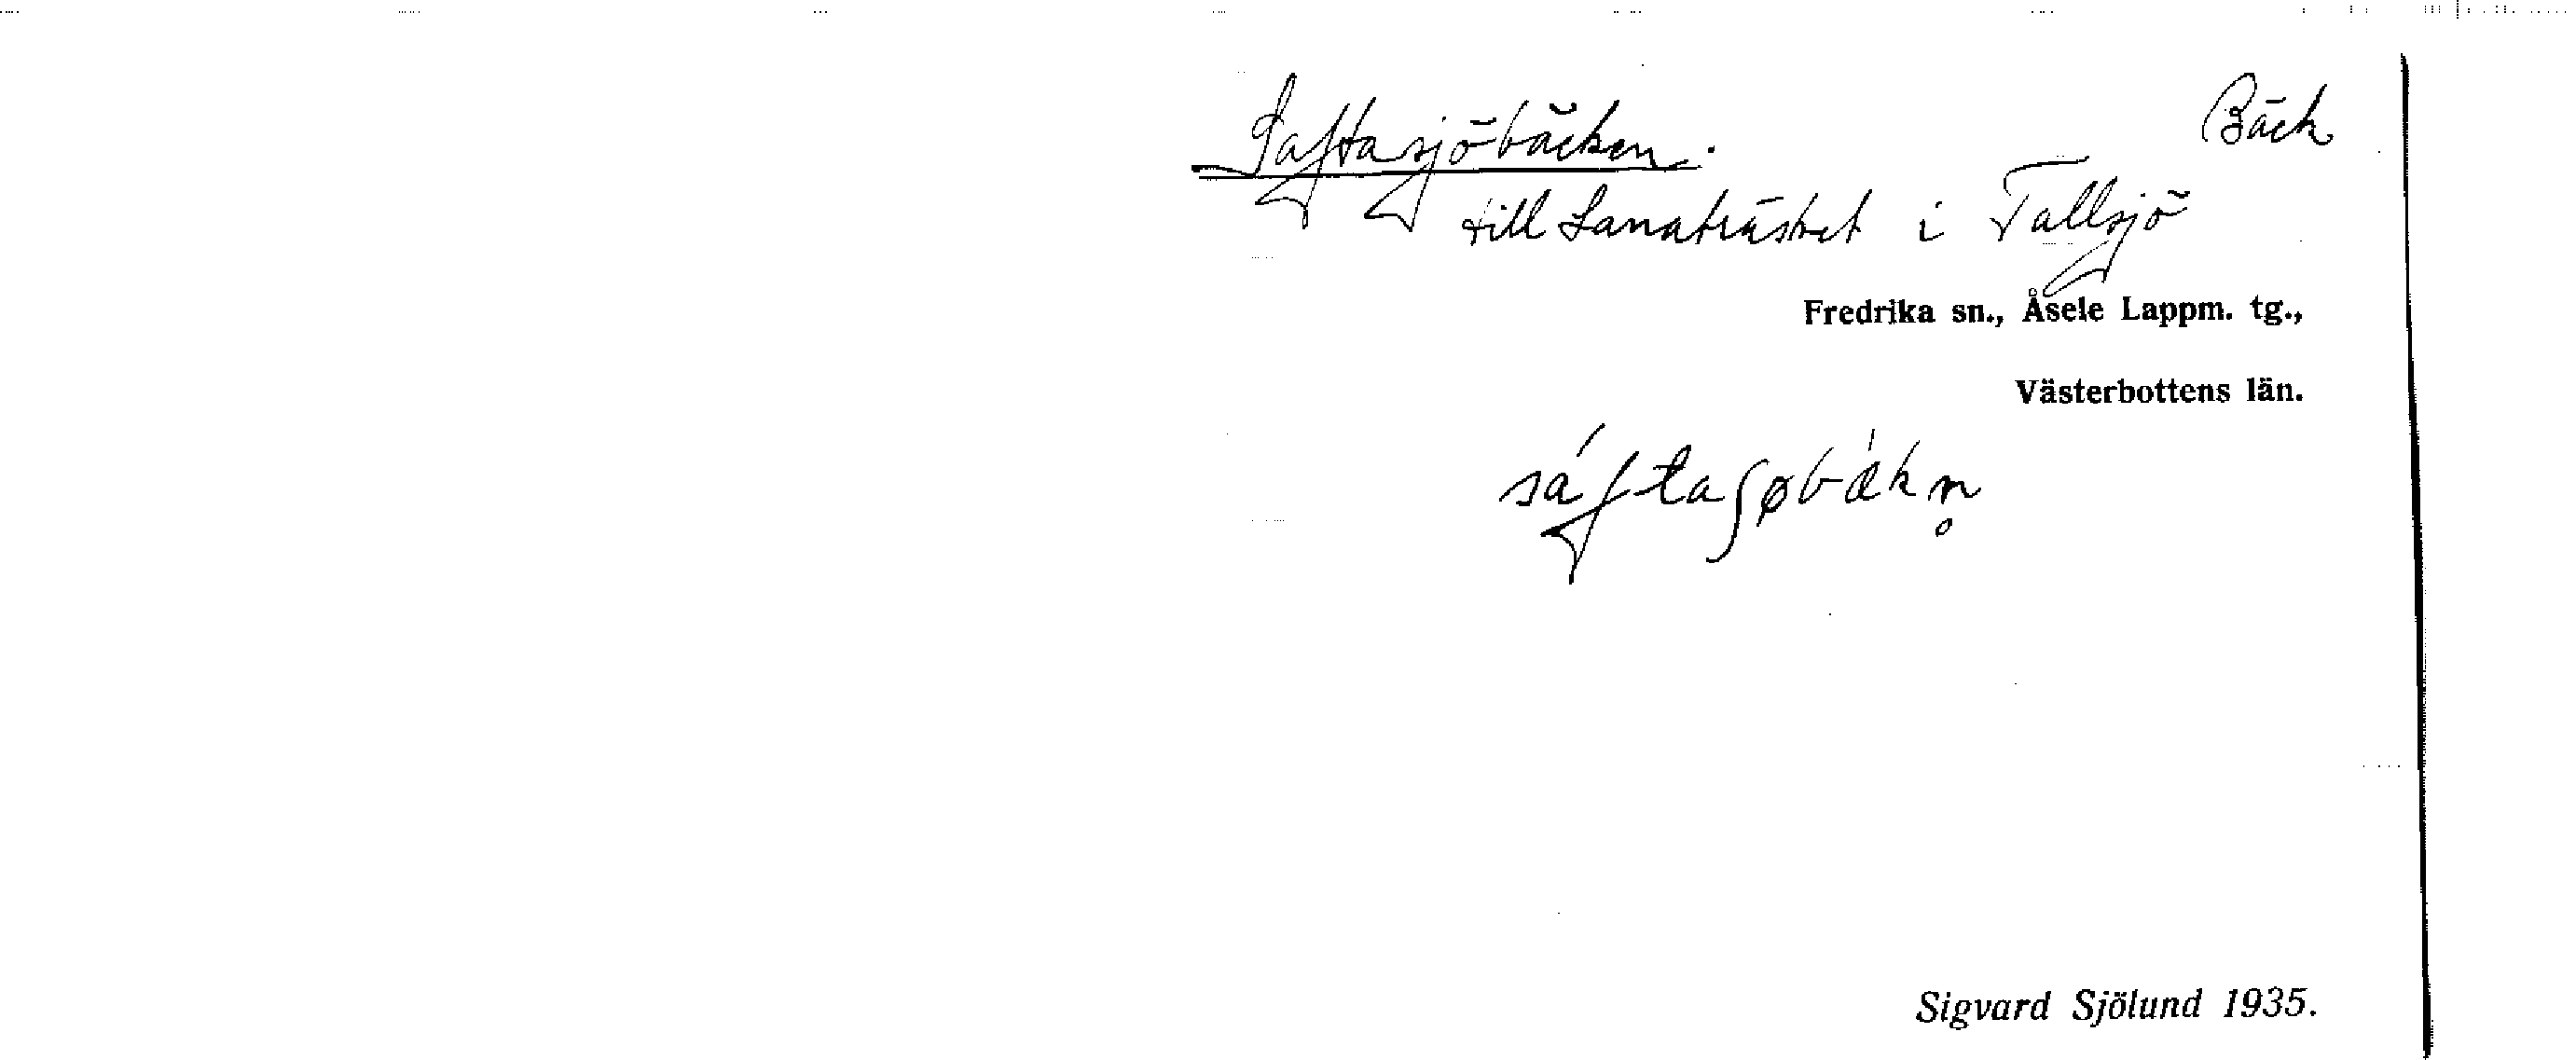 Saftasjöbäcken.
Bäck
till Lanaträsket i Tallsjö
Fredrika sn., Åsele Lappm. tg.,
Västerbottens län.
sáftaʃøbákn̥
Sigvard Sjölund 1935.